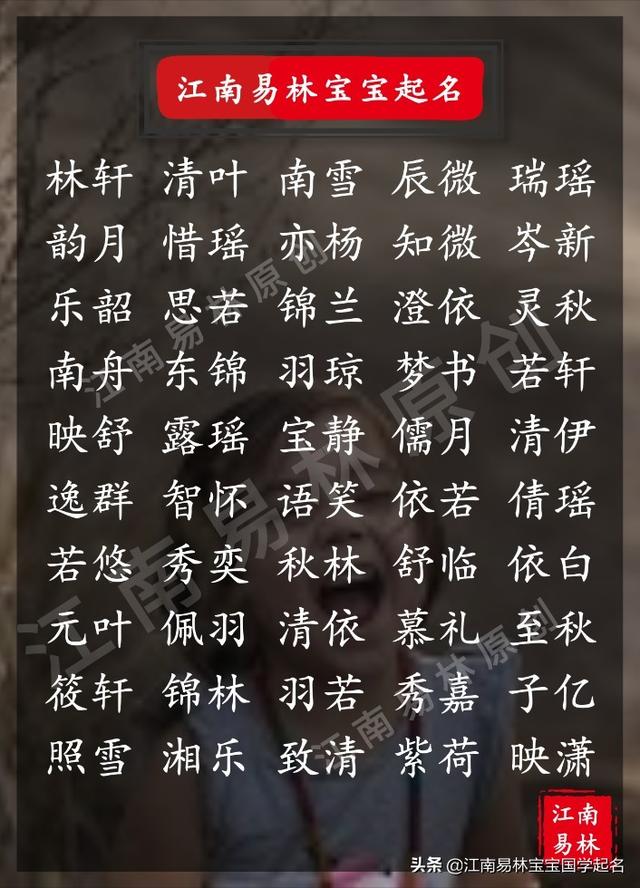 江南易林宝宝起名
林轩 清叶 南雪 辰微 瑞瑶
韵月 惜瑶 亦杨 知微 岑新
乐韶 思若 锦兰 澄依 灵秋
南舟 东锦 羽琼 梦书 若轩
映舒 露瑶 宝静 儒月 清伊
逸群 智怀 语笑 依若 倩瑶
若悠 秀奕 秋林 舒临 依白
元叶 佩羽 清依 慕礼 至秋
筱轩 锦林 羽若 秀嘉 子亿
照雪 湘乐 致清 紫荷 映潇
江南易林原创
江南易林原创
江南易林原创
江南
易林
头条 @江南易林宝宝国学起名